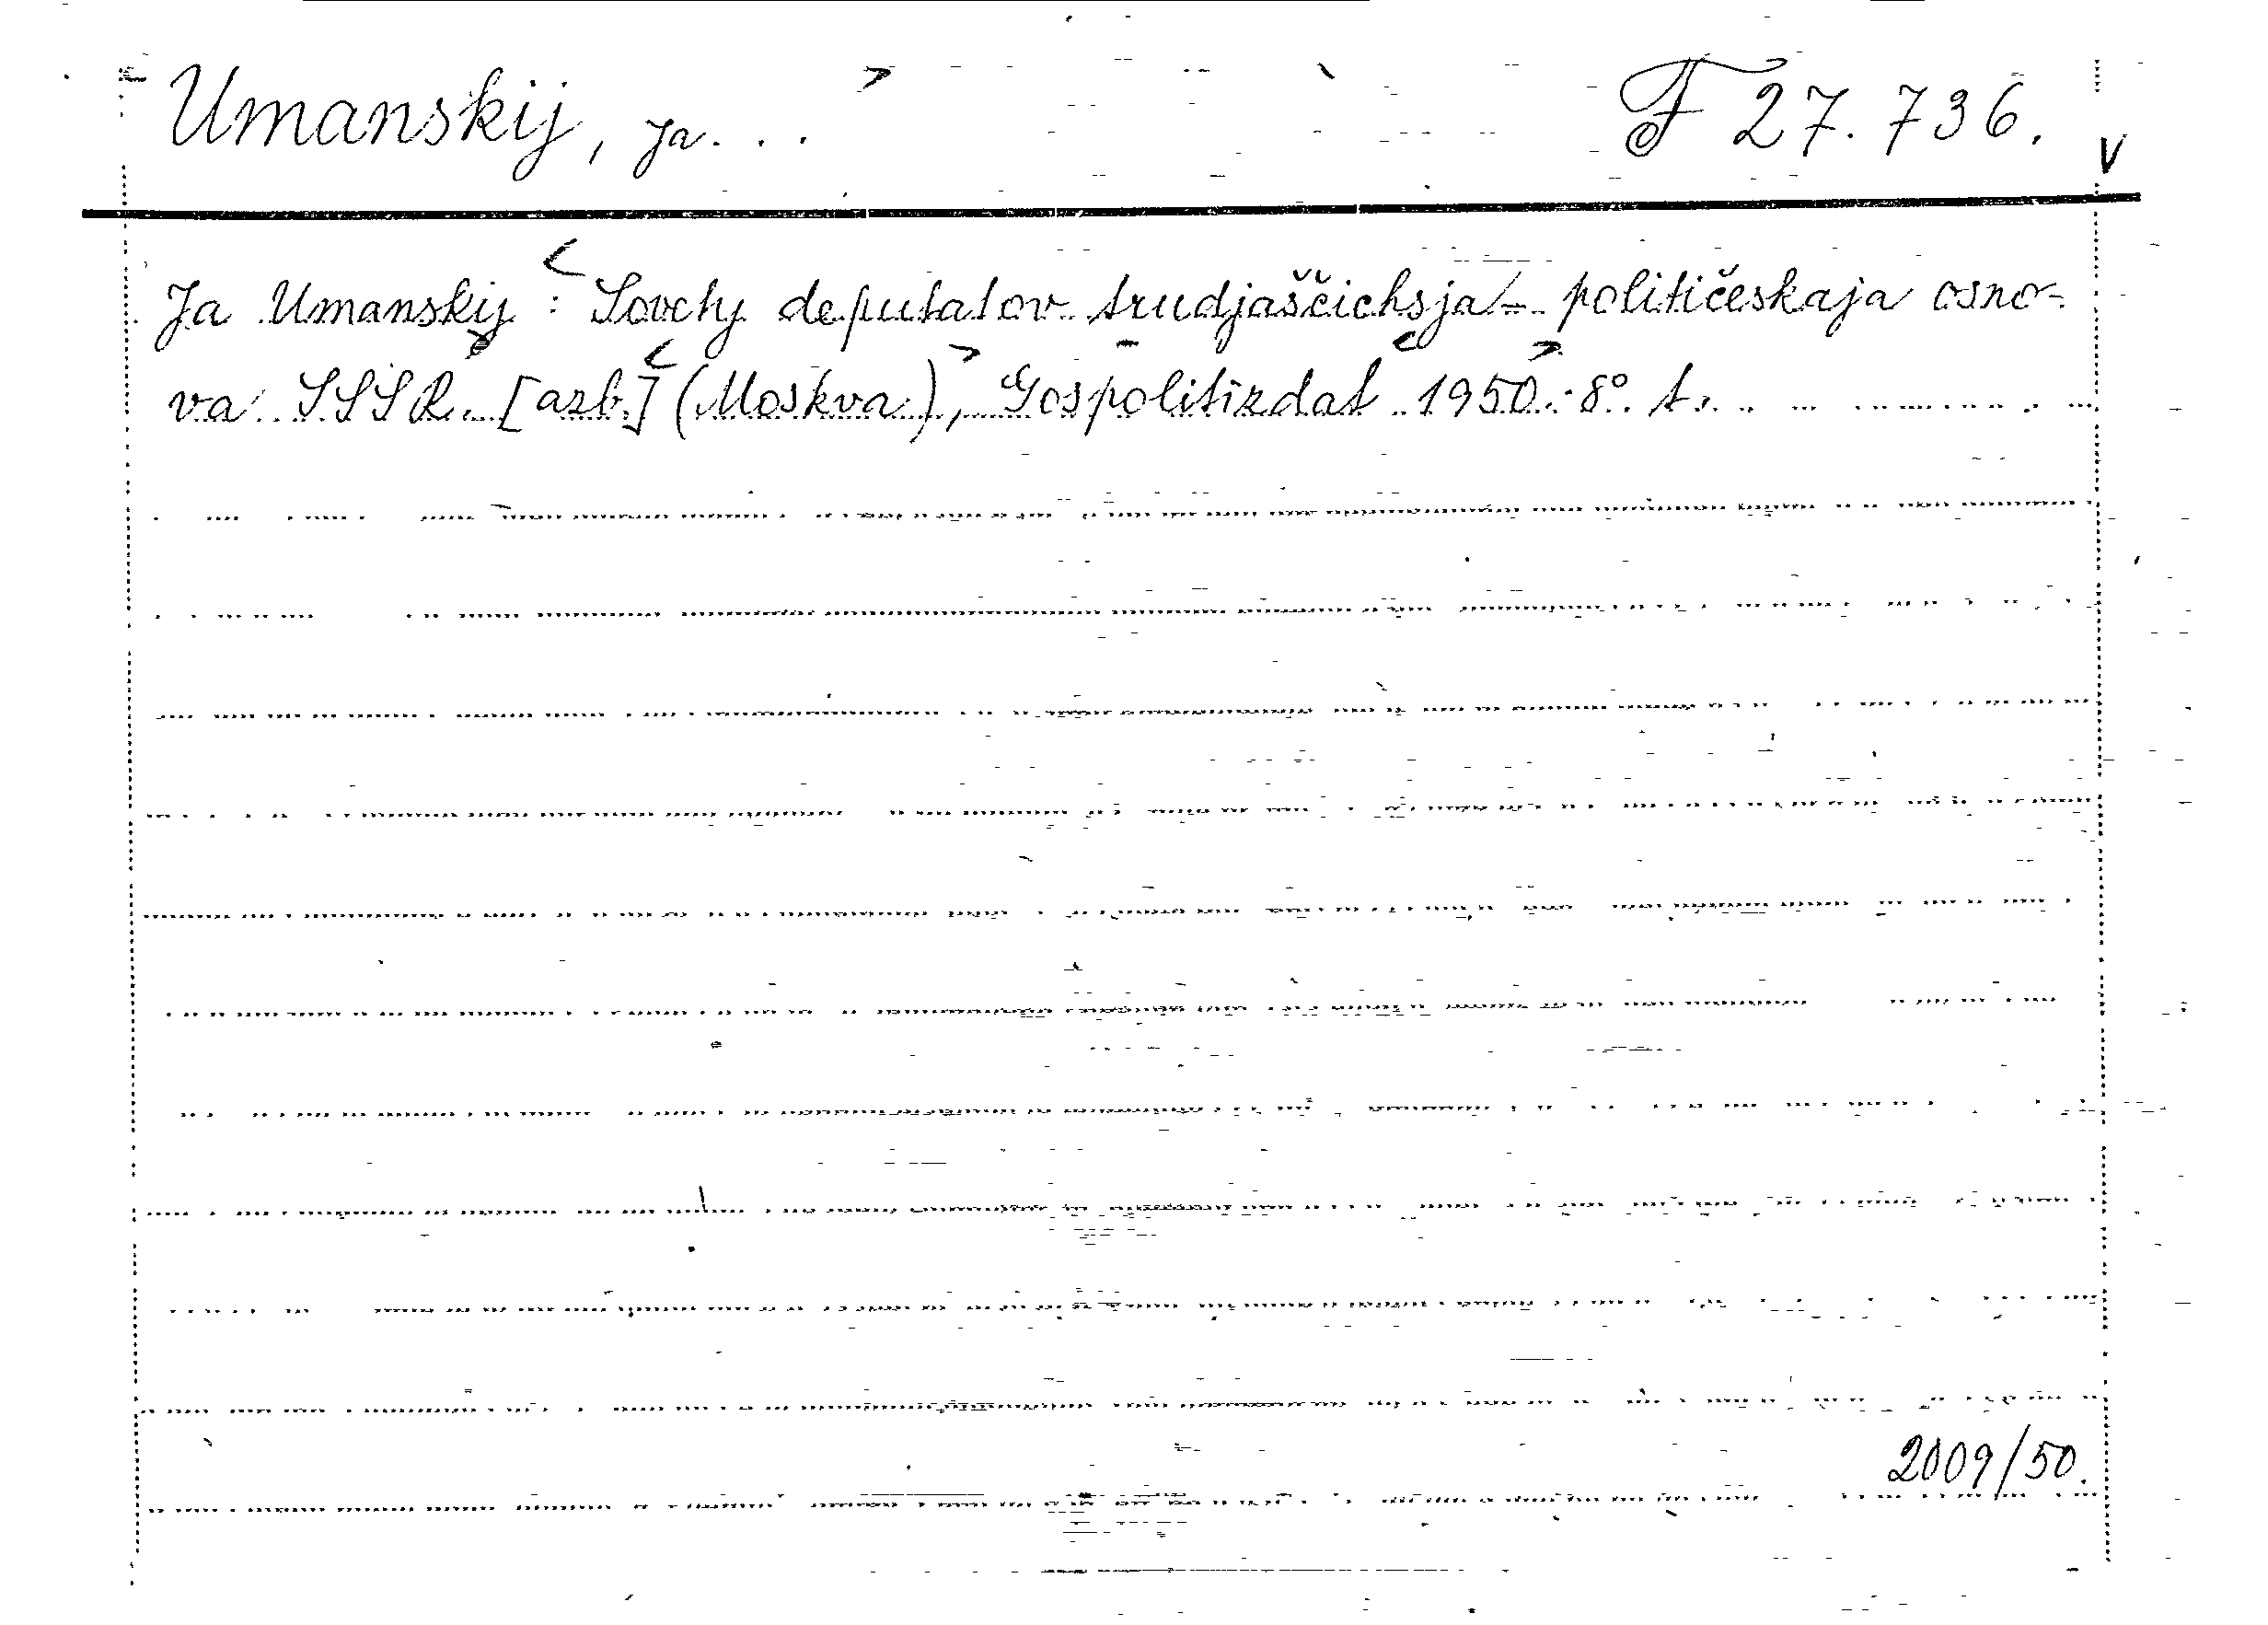 Umanskij, Ja... F 27.736.
Ja Umanskij: Sovety deputatov trudjaščichsja - političeskaja osno-
va SSSR. [azb.] (Moskva), Gospolitizdat 1950. 8° t.
2009/50.